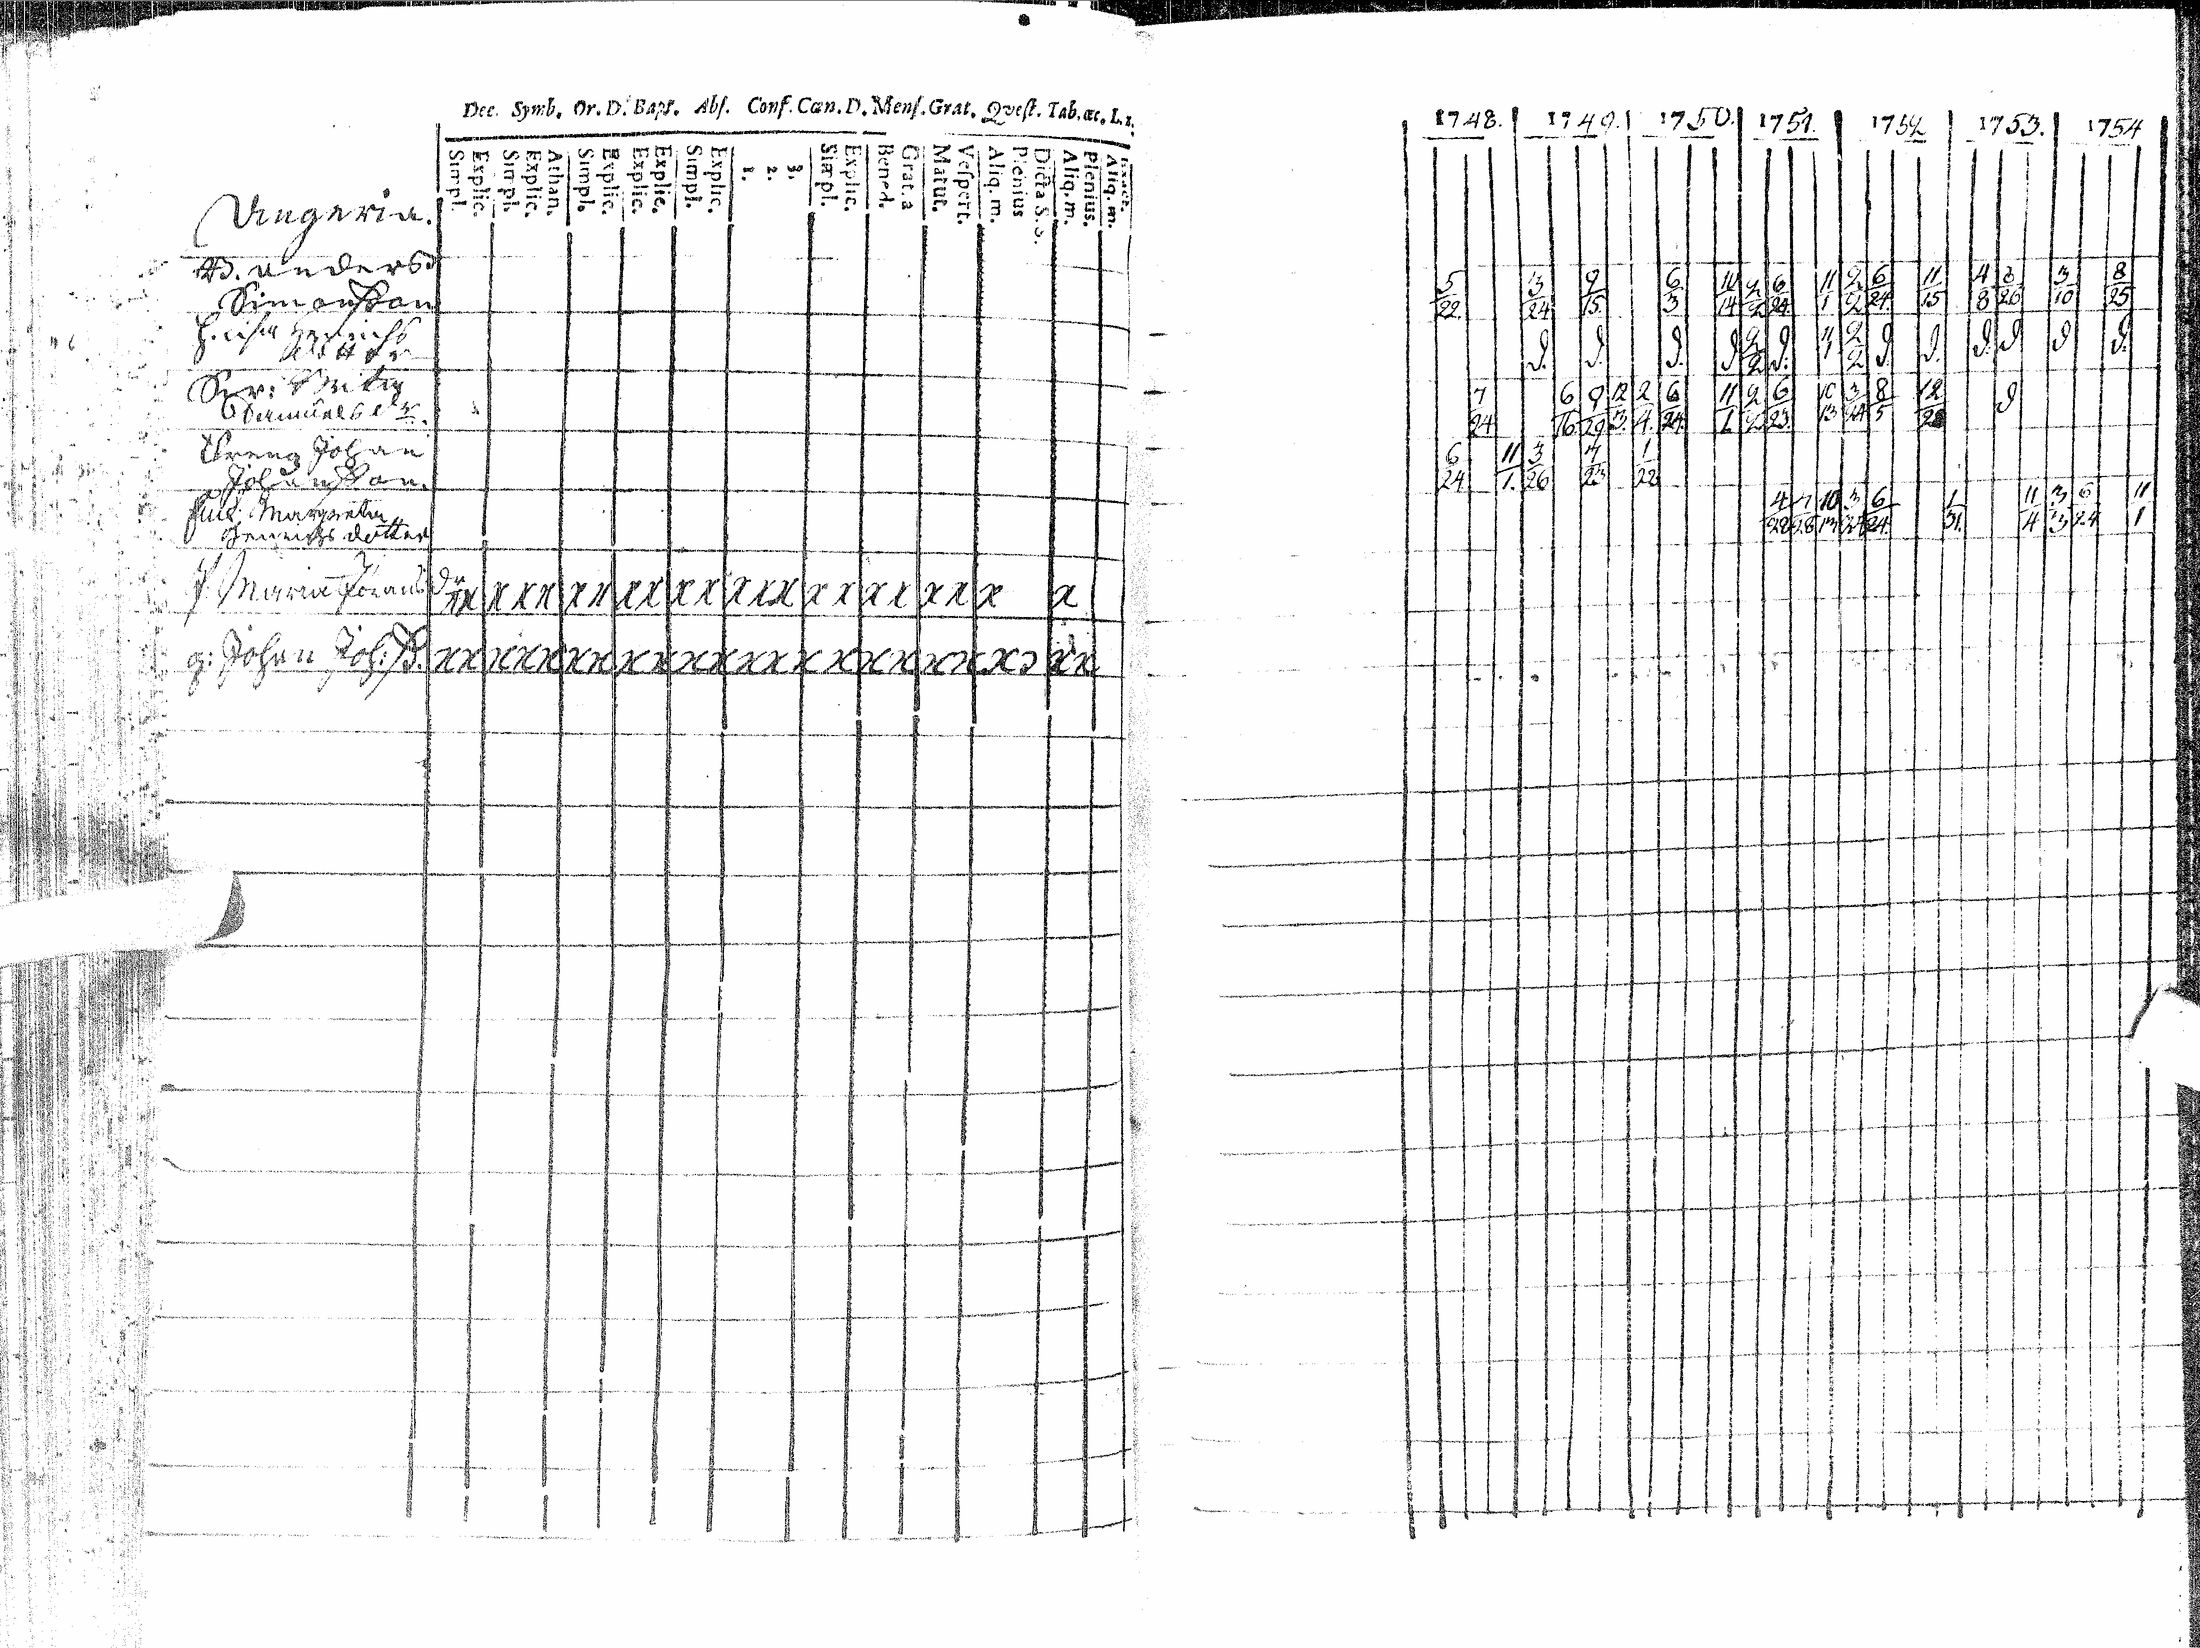 Dec. Symb. Or. D. Bapt. Abs. Conf. Cœn. D. Mens. Grat. Qvest. Tab. œc. L. 1.
Simpl. Explic. Simpl. Explic. Athan. Simpl. Explic. Explic. Explic. Simpl. Explic. 1. 2. 3. Simpl. Explic. Bened. Grat.a Matut. Vespert. Aliq. m. Plenius Dicta S. S. Aliq. m. Plenius. Aliq. m. Exact.
Ungeria.
Anders
Simonsson
Henrichs
dotter
Samuels dr.
Dreng Johan
Johansson.
Margreta
Henrichs dotter
Maria Johans dr x x x x x x x x x x x x x x x x x x x x x x
g: Johan Joh: x x x x x x x x x x x x x x x x x x x x x x x
1748. 1749. 1750. 1751. 1752 1753. 1754
5/22 3/24 9/15. 6/3 11/14 2/2 6/24 11/1 2/2 6/24. 11/15 4/8 3/26 3/10 8/25
d. d. d. d 2/2 d. 11/1 2/2 d. d. d. d d d.
7/24 6/16 9/29 12/3. 2/4. 6/24. 11/1 2/2 6/23. 10/13 3/24 8/5 12/26 d
6/24 11/1. 3/26 7/23 1/22
4/28 7/28 10/13 3/24 6/24. 1/31. 11/4 3/3 6/24 11/1